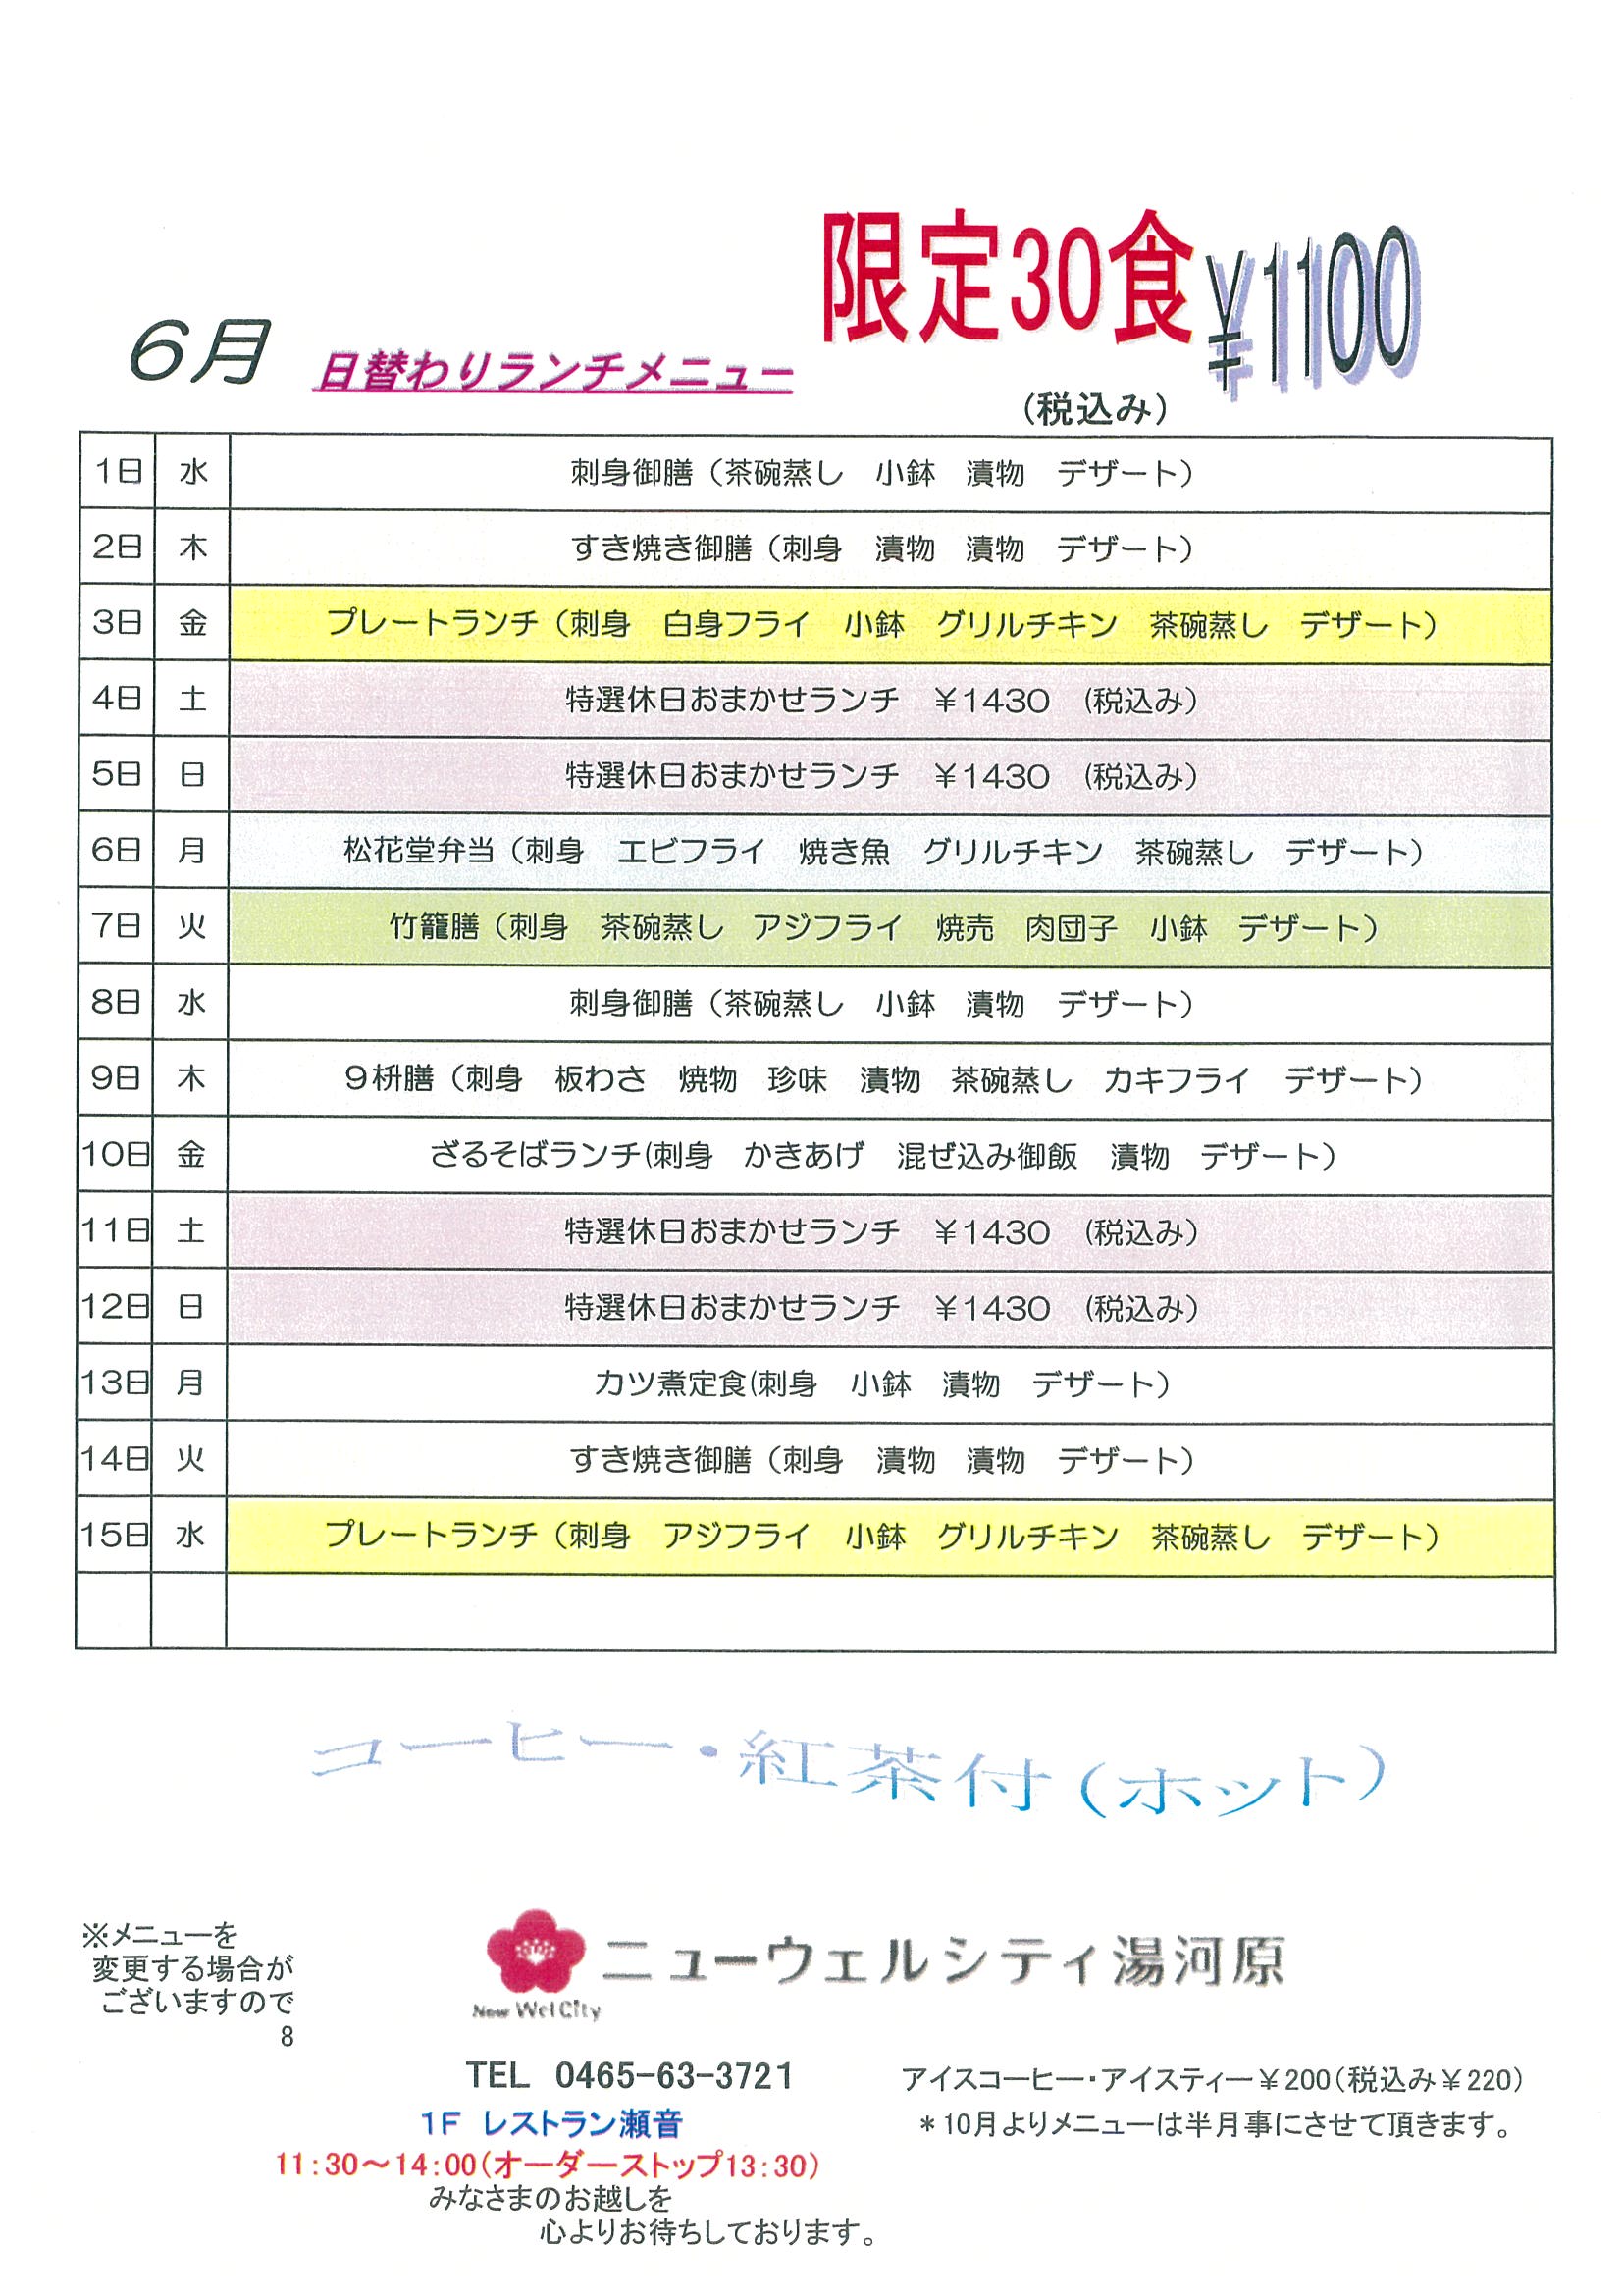 限定30食 ¥1100
6月 日替わりランチメニュー
（税込み）
1日 水 刺身御膳（茶碗蒸し　小鉢　漬物　デザート）
2日 木 すき焼き御膳（刺身　漬物　漬物　デザート）
3日 金 プレートランチ（刺身　白身フライ　小鉢　グリルチキン　茶碗蒸し　デザート）
4日 土 特選休日おまかせランチ　￥1430　（税込み）
5日 日 特選休日おまかせランチ　￥1430　（税込み）
6日 月 松花堂弁当（刺身　エビフライ　焼き魚　グリルチキン　茶碗蒸し　デザート）
7日 火 竹籠膳（刺身　茶碗蒸し　アジフライ　焼売　肉団子　小鉢　デザート）
8日 水 刺身御膳（茶碗蒸し　小鉢　漬物　デザート）
9日 木 9枡膳（刺身　板わさ　焼物　珍味　漬物　茶碗蒸し　カキフライ　デザート）
10日 金 ざるそばランチ(刺身　かきあげ　混ぜ込み御飯　漬物　デザート）
11日 土 特選休日おまかせランチ　￥1430　（税込み）
12日 日 特選休日おまかせランチ　￥1430　（税込み）
13日 月 カツ煮定食(刺身　小鉢　漬物　デザート）
14日 火 すき焼き御膳（刺身　漬物　漬物　デザート）
15日 水 プレートランチ（刺身　アジフライ　小鉢　グリルチキン　茶碗蒸し　デザート）
コーヒー・紅茶付（ホット）
※メニューを
変更する場合が
ございますので
8
ニューウェルシティ湯河原
New WelCity
TEL　0465-63-3721
アイスコーヒー・アイスティー￥200（税込み￥220）
1F　レストラン瀬音
＊10月よりメニューは半月事にさせて頂きます。
11:30～14:00（オーダーストップ13:30）
みなさまのお越しを
心よりお待ちしております。